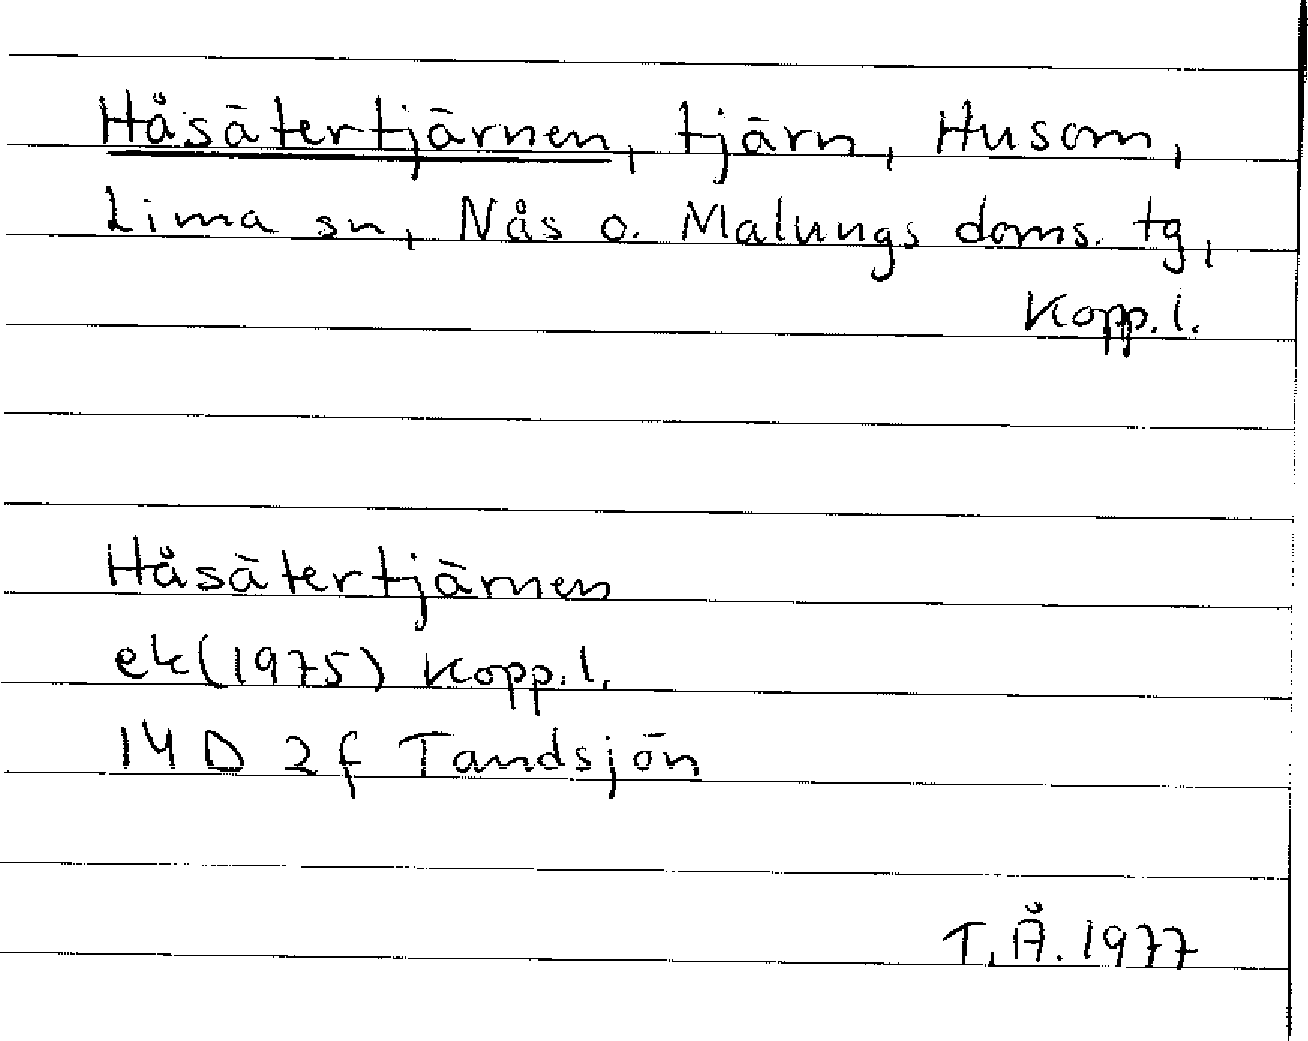 Håsätertjärnen, tjärn, Husom,
Lima sn, Nås o. Malungs doms. tg,
Kopp. l.
Håsätertjärnen
ek (1975) Kopp. l.
14 D 2 f Tandsjön
T. Å. 1977